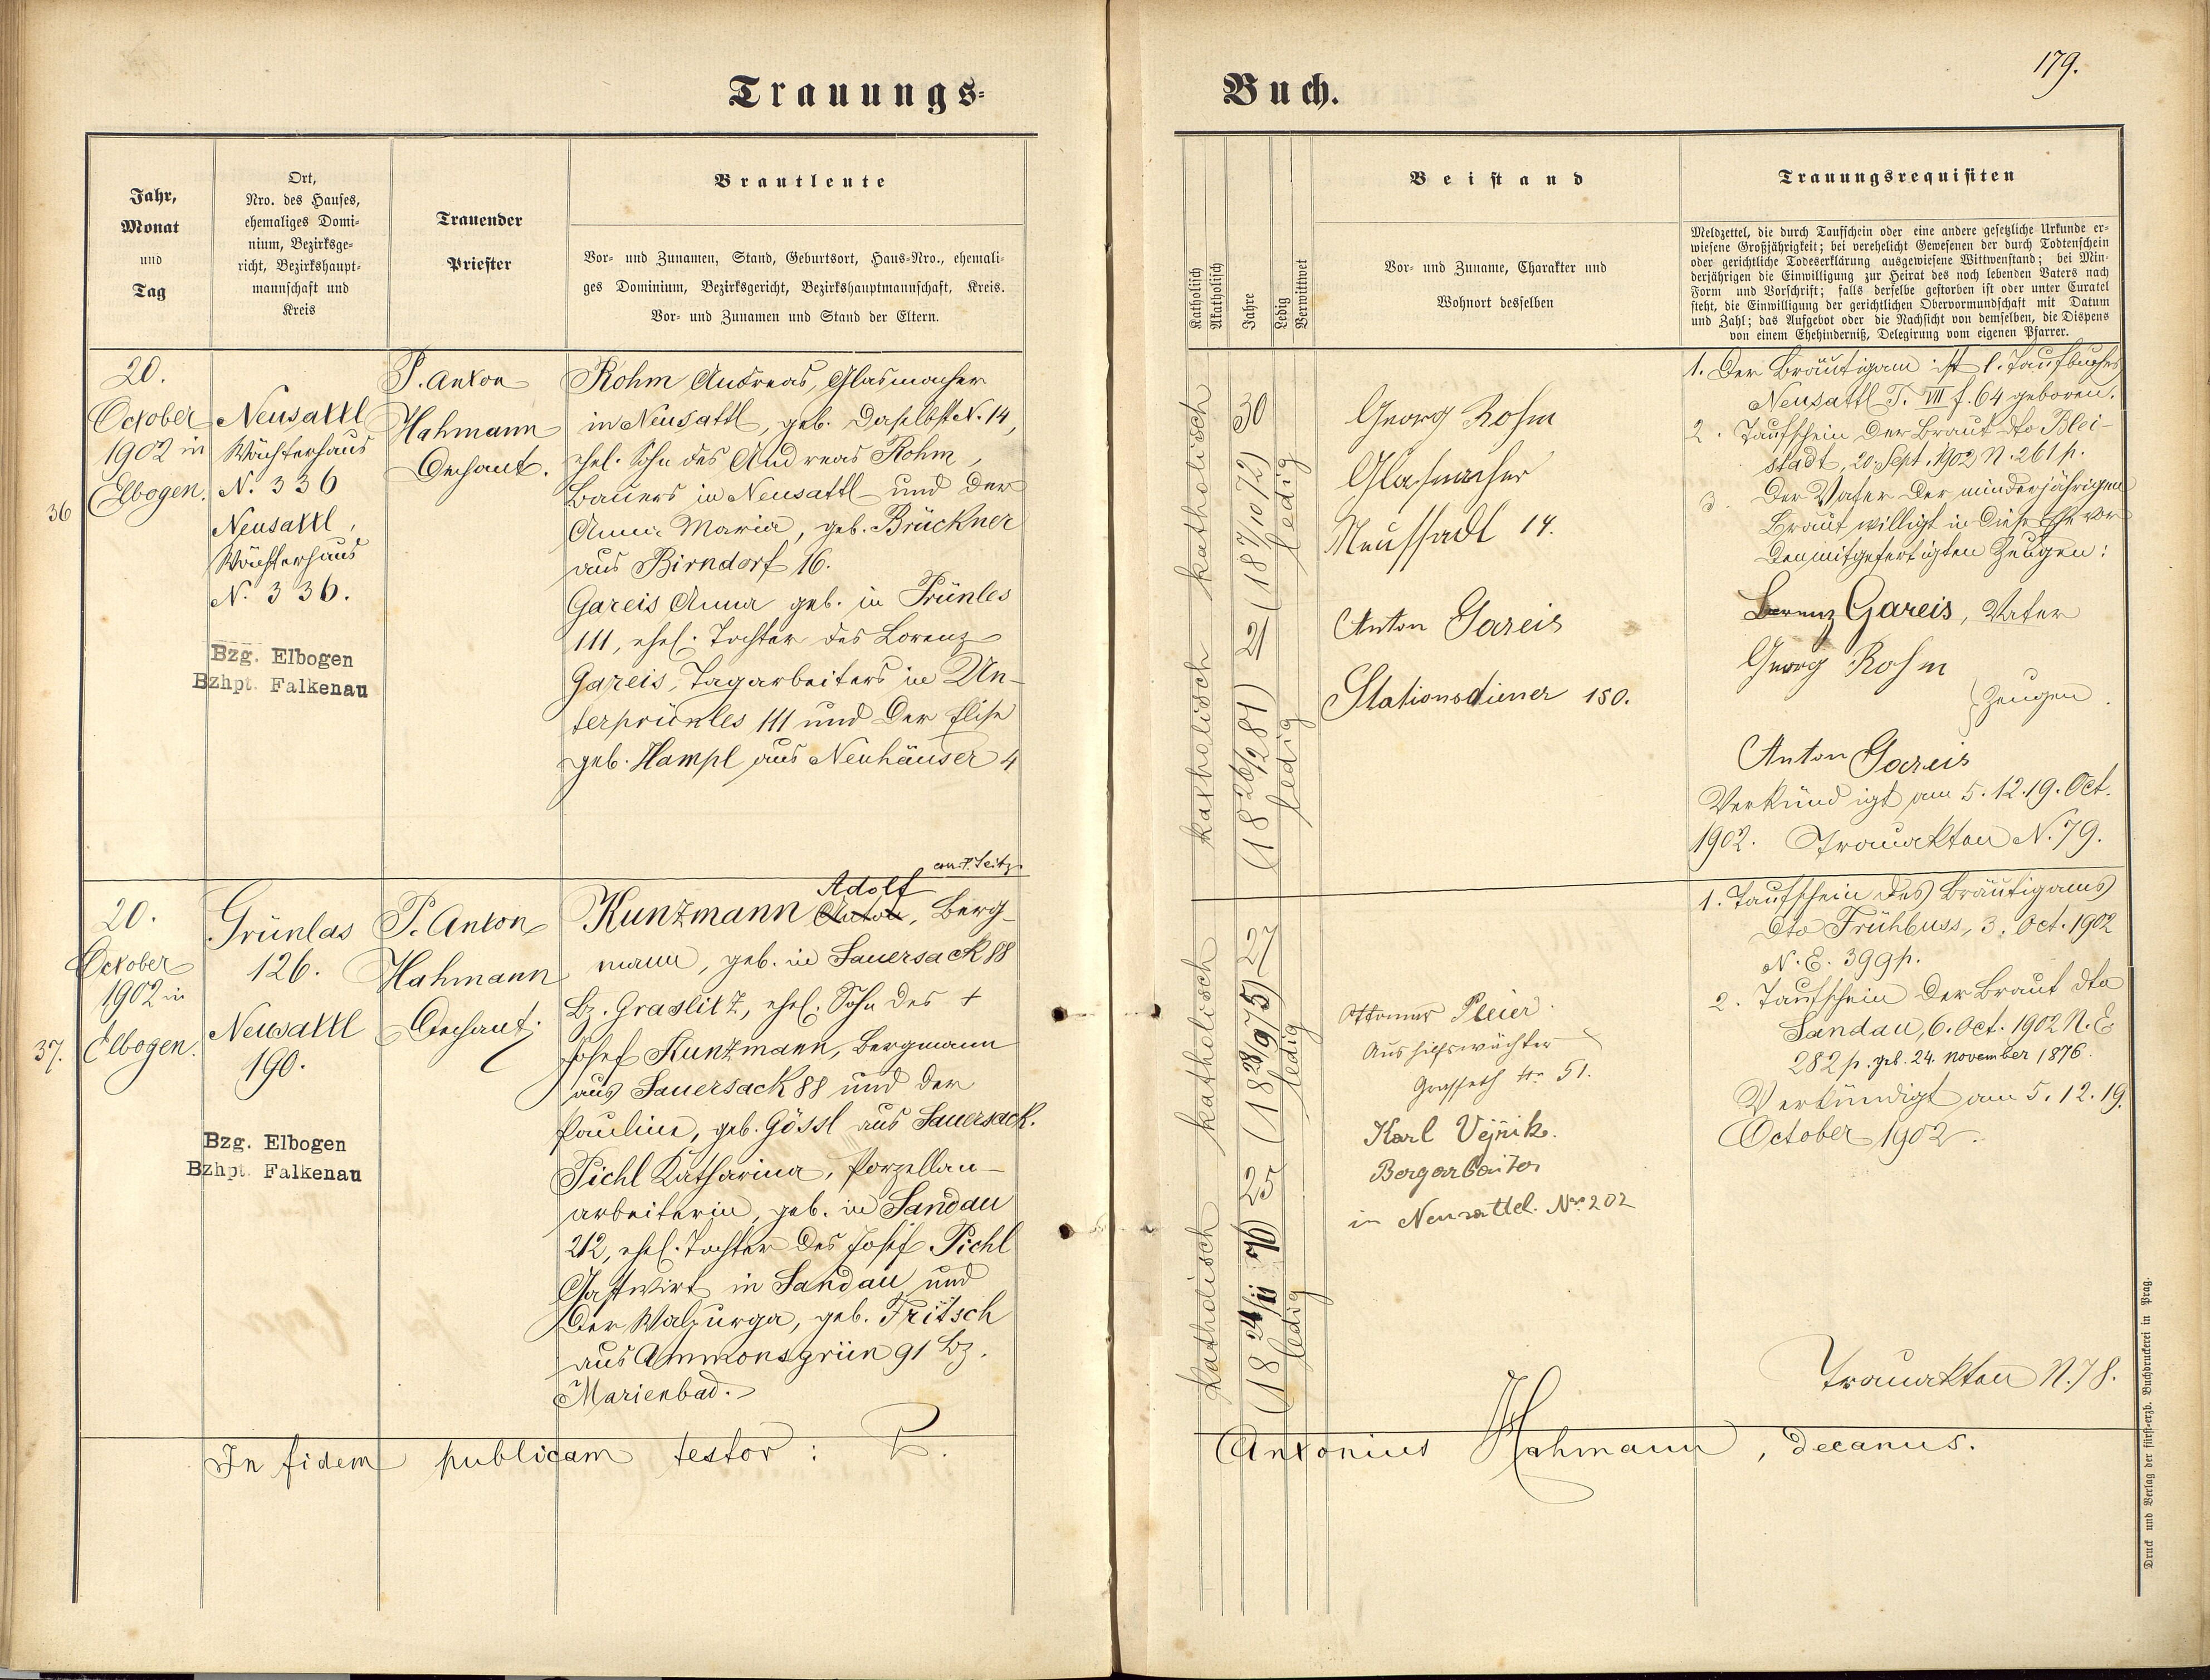 179.
Trauungs-
Buch.
Jahr,
Monat
und
Tag
Ort,
Nro. des Hauses,
ehemaliges Domi-
nium, Bezirksge-
richt, Bezirkshaupt-
mannschaft und
Kreis
Trauender
Priester
Brautleute
Vor- und Zunamen, Stand, Geburtsort, Haus-Nro., ehemali-
ges Dominium, Bezirksgericht, Bezirkshauptmannschaft, Kreis.
Vor- und Zunamen und Stand der Eltern.
Katholisch
Akatholisch
Jahre
Ledig
Verwittwet
Beistand
Vor- und Zuname, Charakter und
Wohnort desselben
Trauungsrequisiten
Meldzettel, die durch Taufschein oder eine andere gesetzliche Urkunde er-
wiesene Großjährigkeit; bei verehelicht Gewesenen der durch Todtenschein
oder gerichtliche Todeserklärung ausgewiesene Wittwenstand; bei Min-
derjährigen die Einwilligung zur Heirat des noch lebenden Vaters nach
Form und Vorschrift; falls derselbe gestorben ist oder unter Curatel
steht, die Einwilligung der gerichtlichen Obervormundschaft mit Datum
und Zahl; das Aufgebot oder die Nachsicht von demselben, die Dispens
von einem Ehehinderniß, Delegirung vom eigenen Pfarrer.
36
20.
October
1902 in
Elbogen.
Neusattl
Wächterhaus
N. 336
Neusattl,
Wächterhaus
N. 336.
Bzg. Elbogen
Bzhpt. Falkenau
P. Anton
Hahmann
Dechant.
Rohm Andreas, Glasmacher
in Neusattl, geb. daselbst N. 14,
ehel. Sohn des Andreas Rohm,
Bauers in Neusattl und der
Anna Maria, geb. Brückner
aus Birndorf 16.
Gareis Anna geb. in Prünles
111, ehel. Tochter des Lorenz
Gareis, Tagarbeiters in Un-
terprünles 111 und der Elise
geb. Hampl aus Neuhäuser 4
katholisch
30
(18 7/10 72)
ledig
katholisch
21
(18 26/2 81)
ledig
Georg Rohm
Glasmacher
Neusstadl 14.
Anton Gareis
Stationsdiener 150.
1. Der Bräutigam ist l. Taufbuches
Neusattl T. VII f. 64 geboren.
2. Taufschein der Braut dto Blei-
stadt, 20. Sept. 1902 N. 261 p.
3 Der Vater der minderjährigen
Braut willigt in diese Ehe vor
den mitgefertigten Zeugen:
Lorenz Gareis, Vater
Georg Rohm
Zeugen
Anton Gareis
Verkündigt am 5. 12. 19. Oct.
1902. Trauakten N. 79.
37.
20.
October
1902 in
Elbogen.
Grünlas
126.
Neusattl
190.
Bzg. Elbogen
Bzhpt. Falkenau
P. Anton
Hahmann
Dechant.
Adolf
Kunzmann Anton, Berg-
mann, geb. in Sauersack 88
Bz. Graslitz, ehel. Sohn des +
Josef Kunzmann, Bergmann
aus Sauersack 88 und der
Pauline, geb. Gössl aus Sauersack.
Pichl Katharina, Porzellan-
arbeiterin, geb. in Sandau
212, ehel. Tochter des Josef Pichl
Gastwirt in Sandau und
der Walpurga, geb. Fritsch
aus Ammonsgrün 91 Bz.
Marienbad.
katholisch
27
(18 28/9 75)
ledig
katholisch
25
(18 24/11 76)
ledig
Ottomar Pleier
Aushilfswächter
Grasseth N 51.
Karl Vejnik.
Bergarbeiter
in Neusattel. Nro 202
1. Taufschein des Bräutigams
dto Frühbuss, 3. Oct. 1902
N. E. 399 p.
2. Taufschein der Braut dto
Sandau, 6. Oct. 1902 N. E
282 p. geb. 24. November 1876.
Verkündigt am 5. 12. 19.
October 1902.
Trauakten N. 78.
In fidem publicam testor: P.
Antonius Hahmann, decanus.
Druck und Verlag der fürst-erzb. Buchdruckerei in Prag.